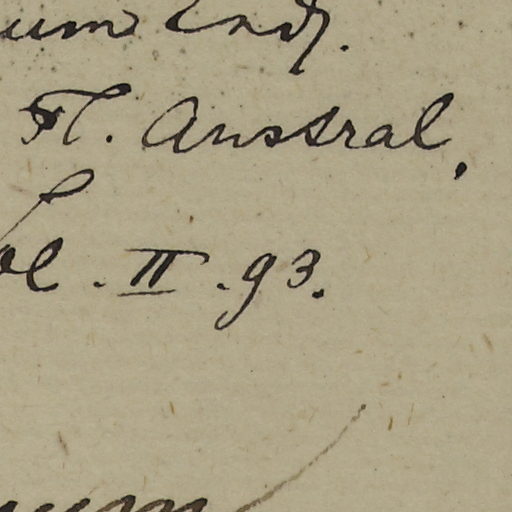 um Endl.
Fl. Austral,
ol. II. 93.